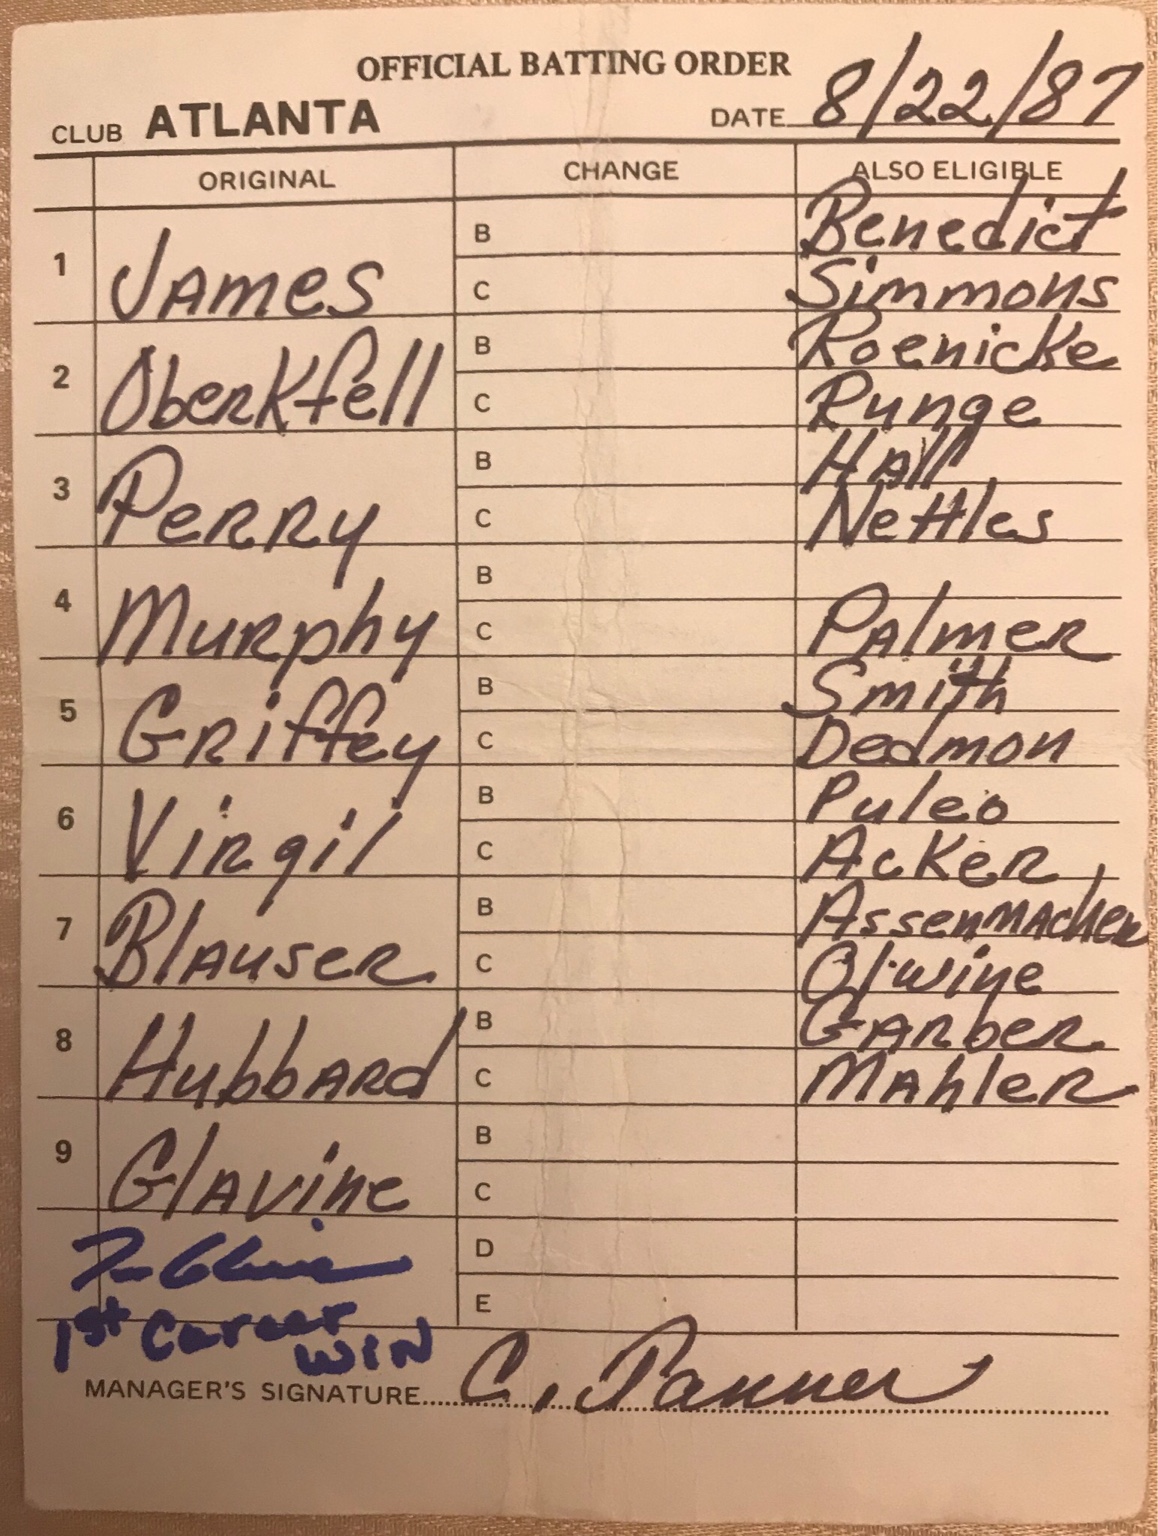 OFFICIAL BATTING ORDER
CLUB ATLANTA DATE 8/22/87
ORIGINAL CHANGE ALSO ELIGIBLE
1 James B Benedict
C Simmons
2 Oberkfell B Roenicke
C Runge
3 Perry B Hall
C Nettles
4 Murphy B
C Palmer
5 Griffey B Smith
C Dedmon
6 Virgil B Puleo
C Acker
7 Blauser B Assenmacher
C Olwine
8 Hubbard B Garber
C Mahler
9 Glavine B
C
Tom Glavine D
E
1st Career
WIN
MANAGER'S SIGNATURE C. Tanner